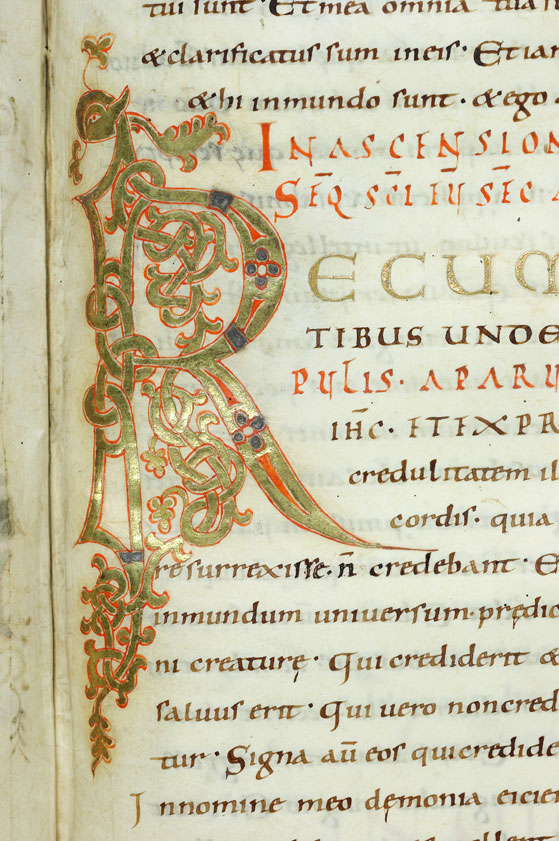 tui sunt · Et mea omnia tua s
& clarificatus sum ineis · Et ian
& hi inmundo sunt · & ego
IN ASCENSION
SEQ̄ SC̄I EŪ SEC̄
RECUM
TIBUS UNDE
PULIS · APARU
IHC̄ · ET EXPR
credulitatem il
cordis · quia
resurrexisse · n̄ credebant · E
inmundum universum · prędic
ni creaturę · Qui crediderit &
saluus erit · Qui vero noncred
tur · Signa aū eos quicredide
Innomine meo dęmonia eicien